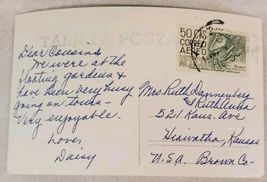 TARJETA POSTAL
50 CTS
CORREO
AEREO
Dear Cousins
We were at the
floating gardens &
have been very busy
going on tours -
Very enjoyable.
Love,
Daisy
Mrs. Ruth Dannenberg
& Ruth Anna
521 Kans. Ave
Hiawatha, Kansas
U.S.A. Brown Co-